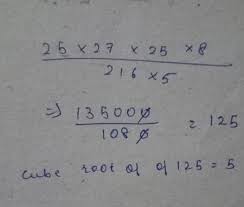 25 × 27 × 25 × 8
216 × 5
=> 135000
1080
= 125
cube root of of 125 = 5